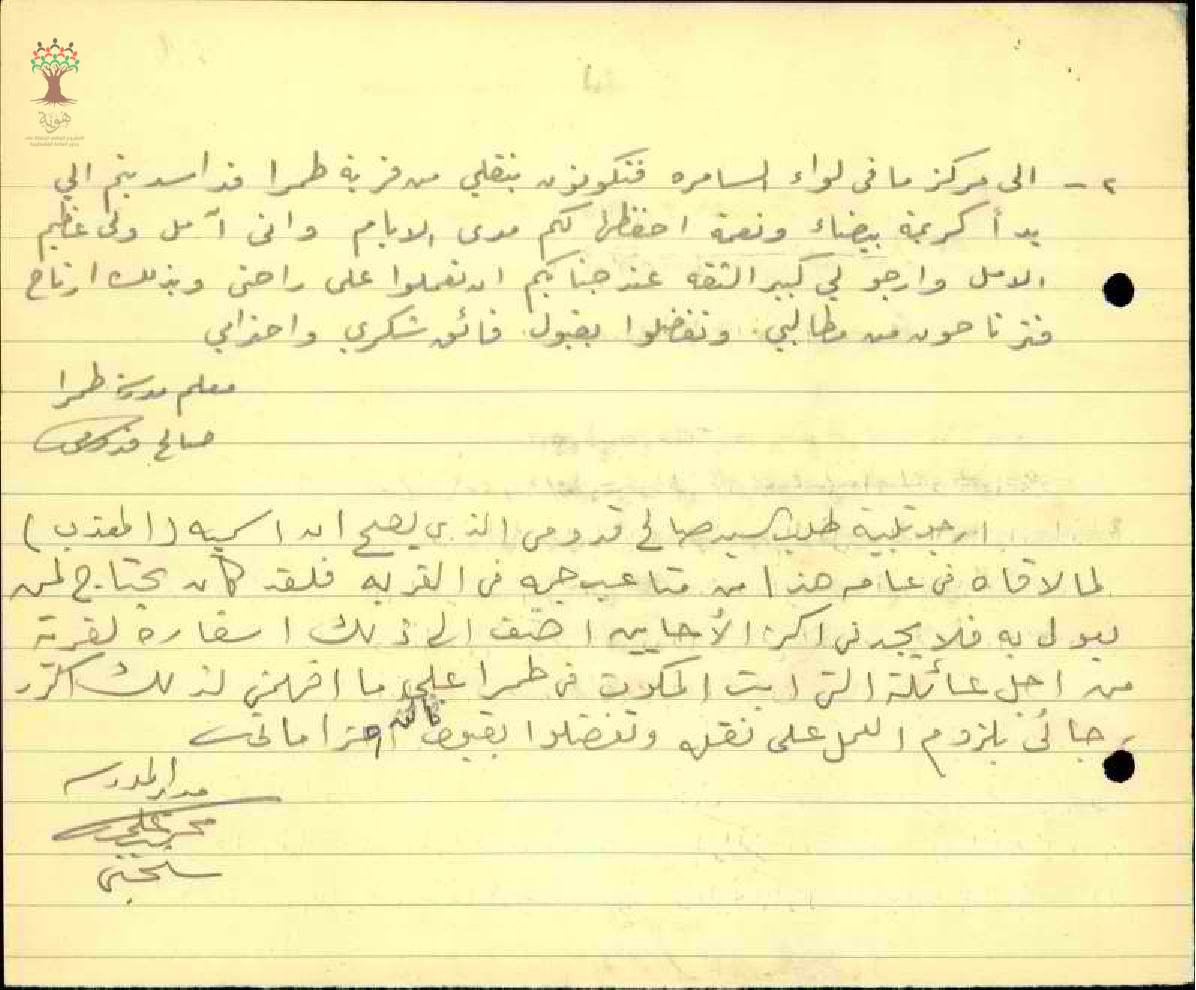 هوية
٢ - الى مركز ما في لواء السامره فتكونون بنقلي من قرية طمرا قد اسديتم الي
يداً كريمة بيضاء ونعمة احفظها لكم مدى الايام واني آمل ولي عظيم
الامل وارجو لي كبير الثقه عند جنابكم ان تعملوا على راحتي وبذلك ارتاح
فترتاحون من مطالبي. وتفضلوا بقبول فائق شكري واحترامي
معلم مدرسة طمرا
صالح قدومي
ارجو تلبية طلب السيد صالح قدومي الذي يصح ان اسميه (المعذب)
لما لاقاه في عامه هذا من متاعب جمه في القريه فلقد كان يحتاج لمن
يقول به فلا يجد في اكثر الأحايين اضف الى ذلك اسفاره لقريته
من اجل عائلته التي ابت المكوث في طمرا على ما افهمني لذلك اكرر
رجائي بلزوم العمل على نقله وتفضلوا بقبول فائق احتراماتي
مدير المدرسه